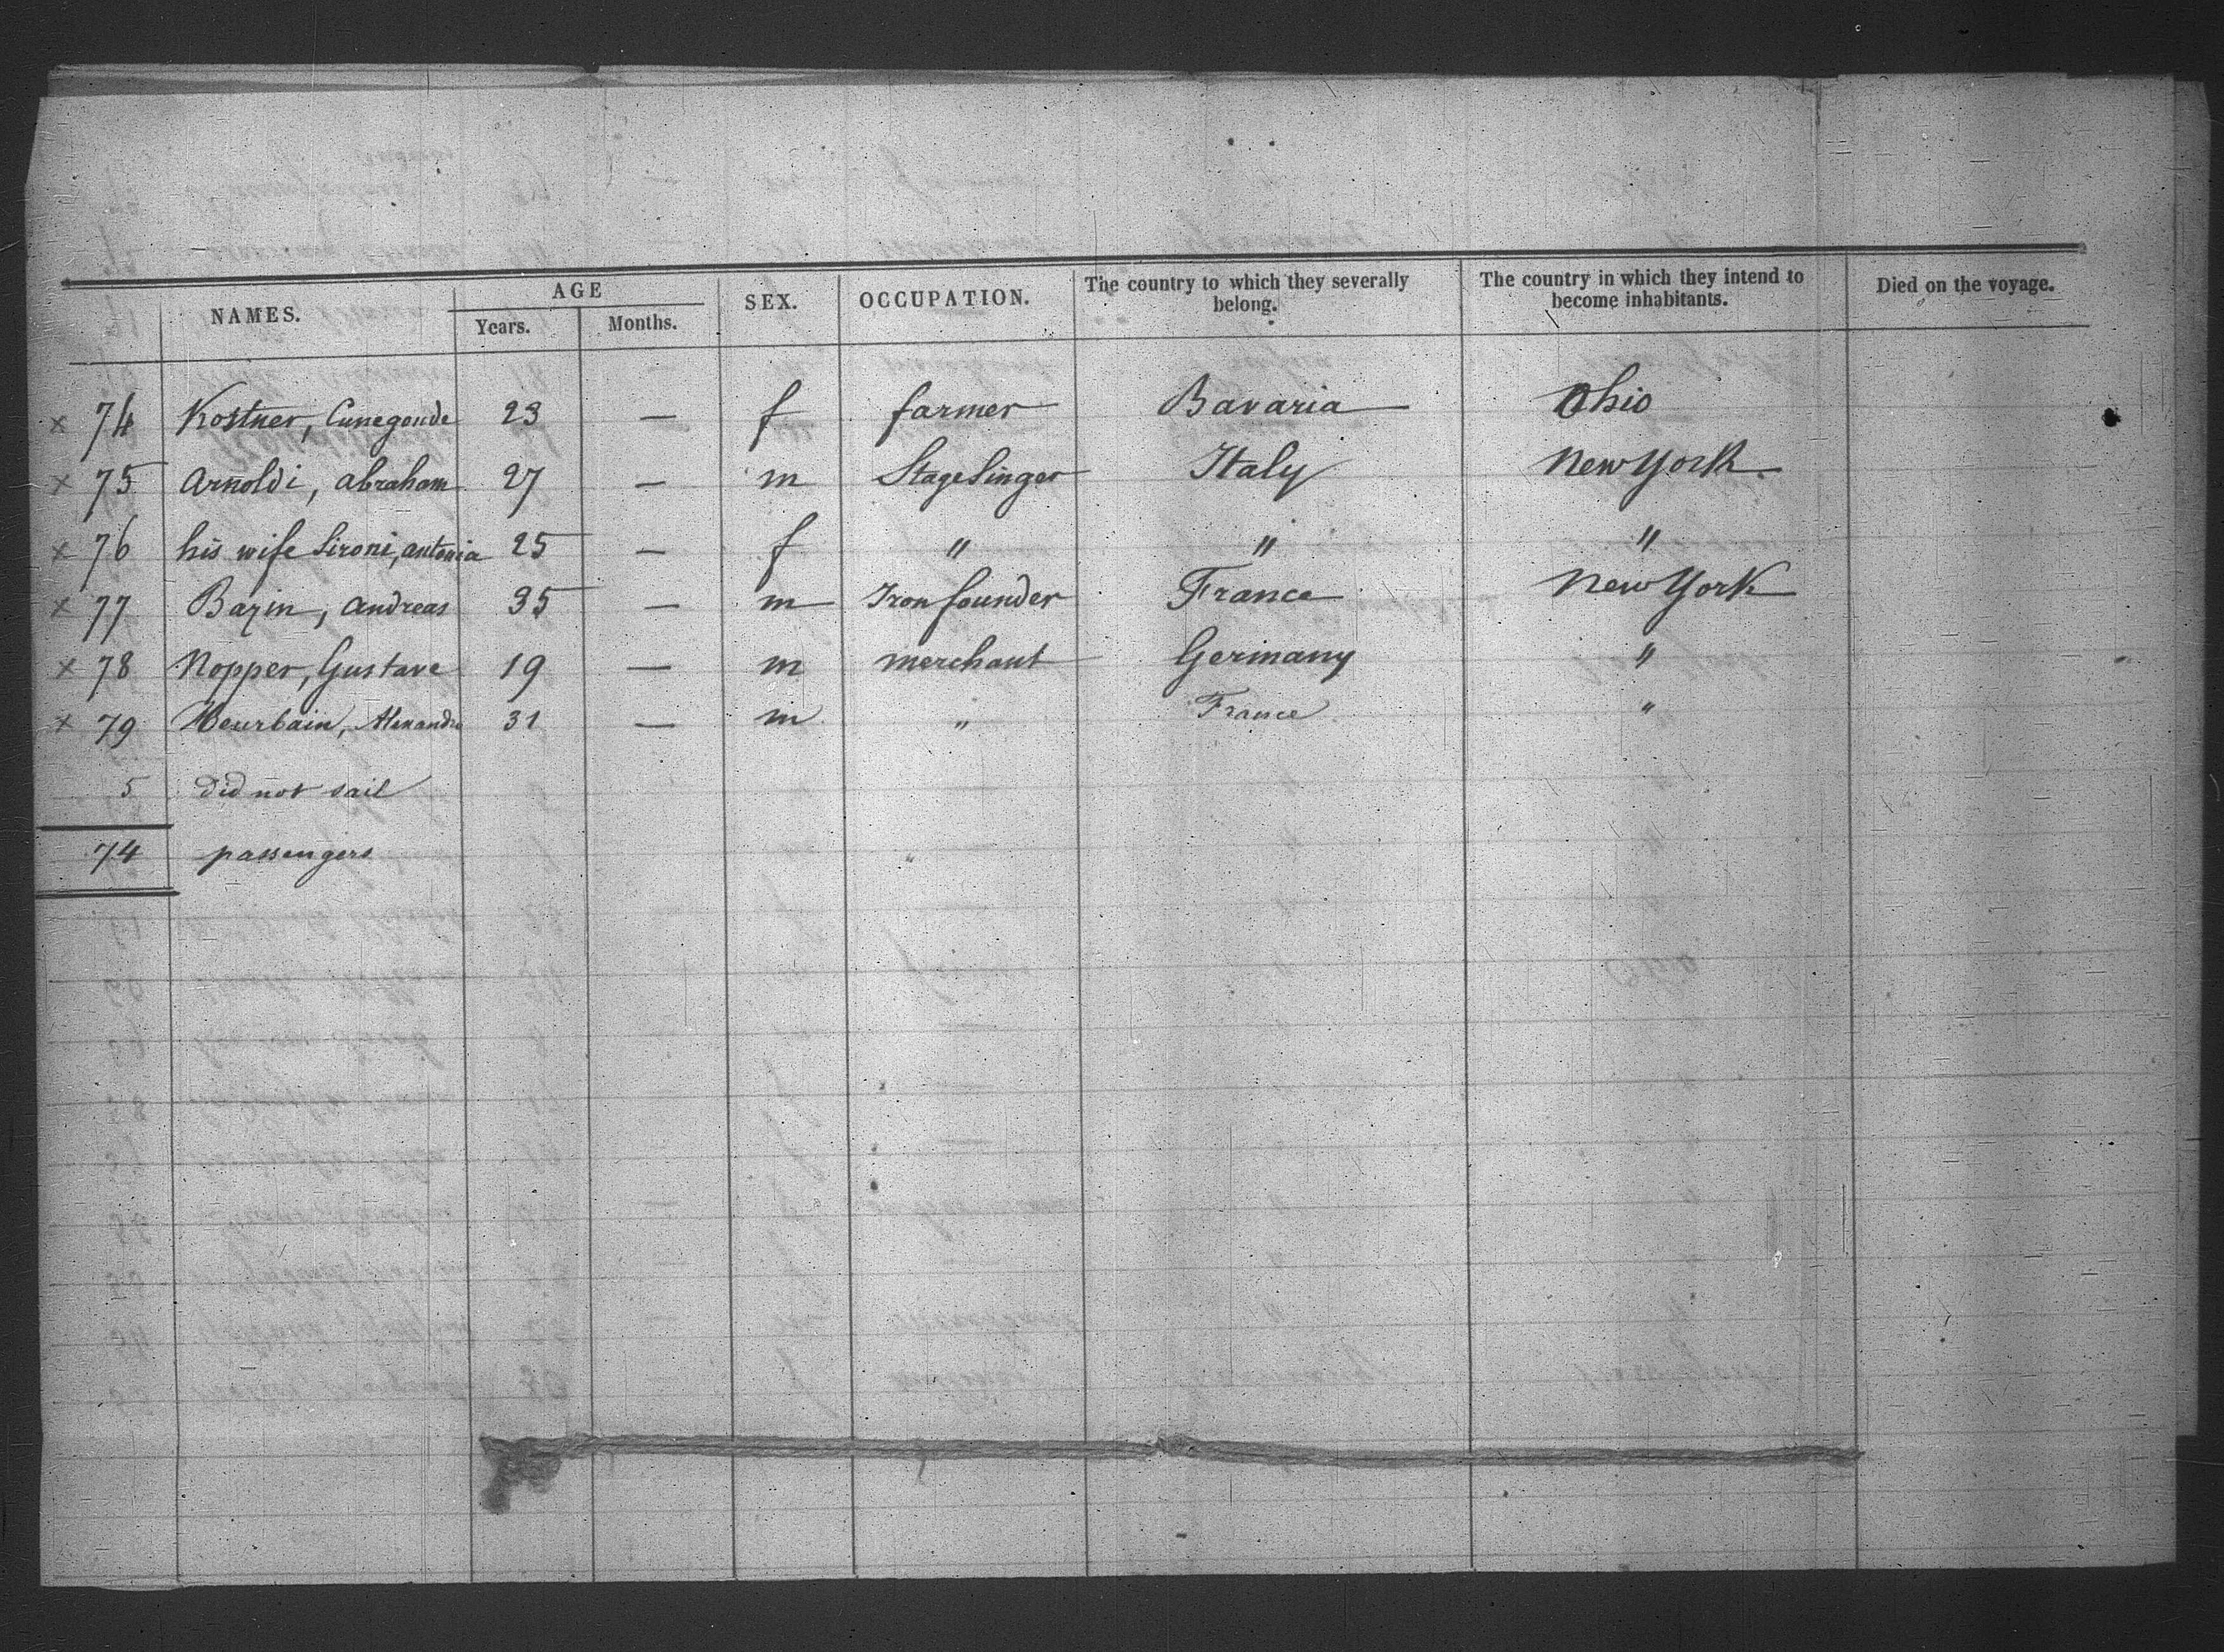 NAMES. AGE SEX. OCCUPATION. The country to which they severally belong. The country in which they intend to become inhabitants. Died on the voyage.
Years. Months.
x 74 Kostner, Cunegonde 23 — f farmer Bavaria Ohio
x 75 Arnoldi, abraham 27 — m Stage Singer Italy New York.
x 76 his wife Sironi, antonia 25 — f " " "
x 77 Bazin, andreas 35 — m Iron founder France New York
x 78 Nopper, Gustave 19 — m merchant Germany "
x 79 Heurbain, Alexandre 31 — m " France "
5 did not sail
74 passengers